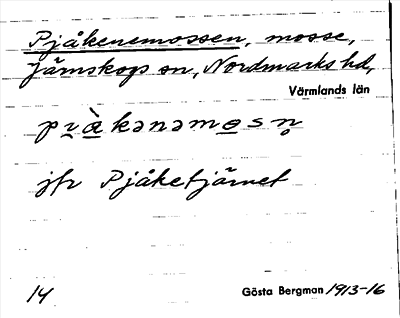 Pjåkenemossen, mosse,
Järnskogs sn, Nordmarks hd,
Värmlands län
jfr Pjåketjärnet
14
Gösta Bergman 1913-16